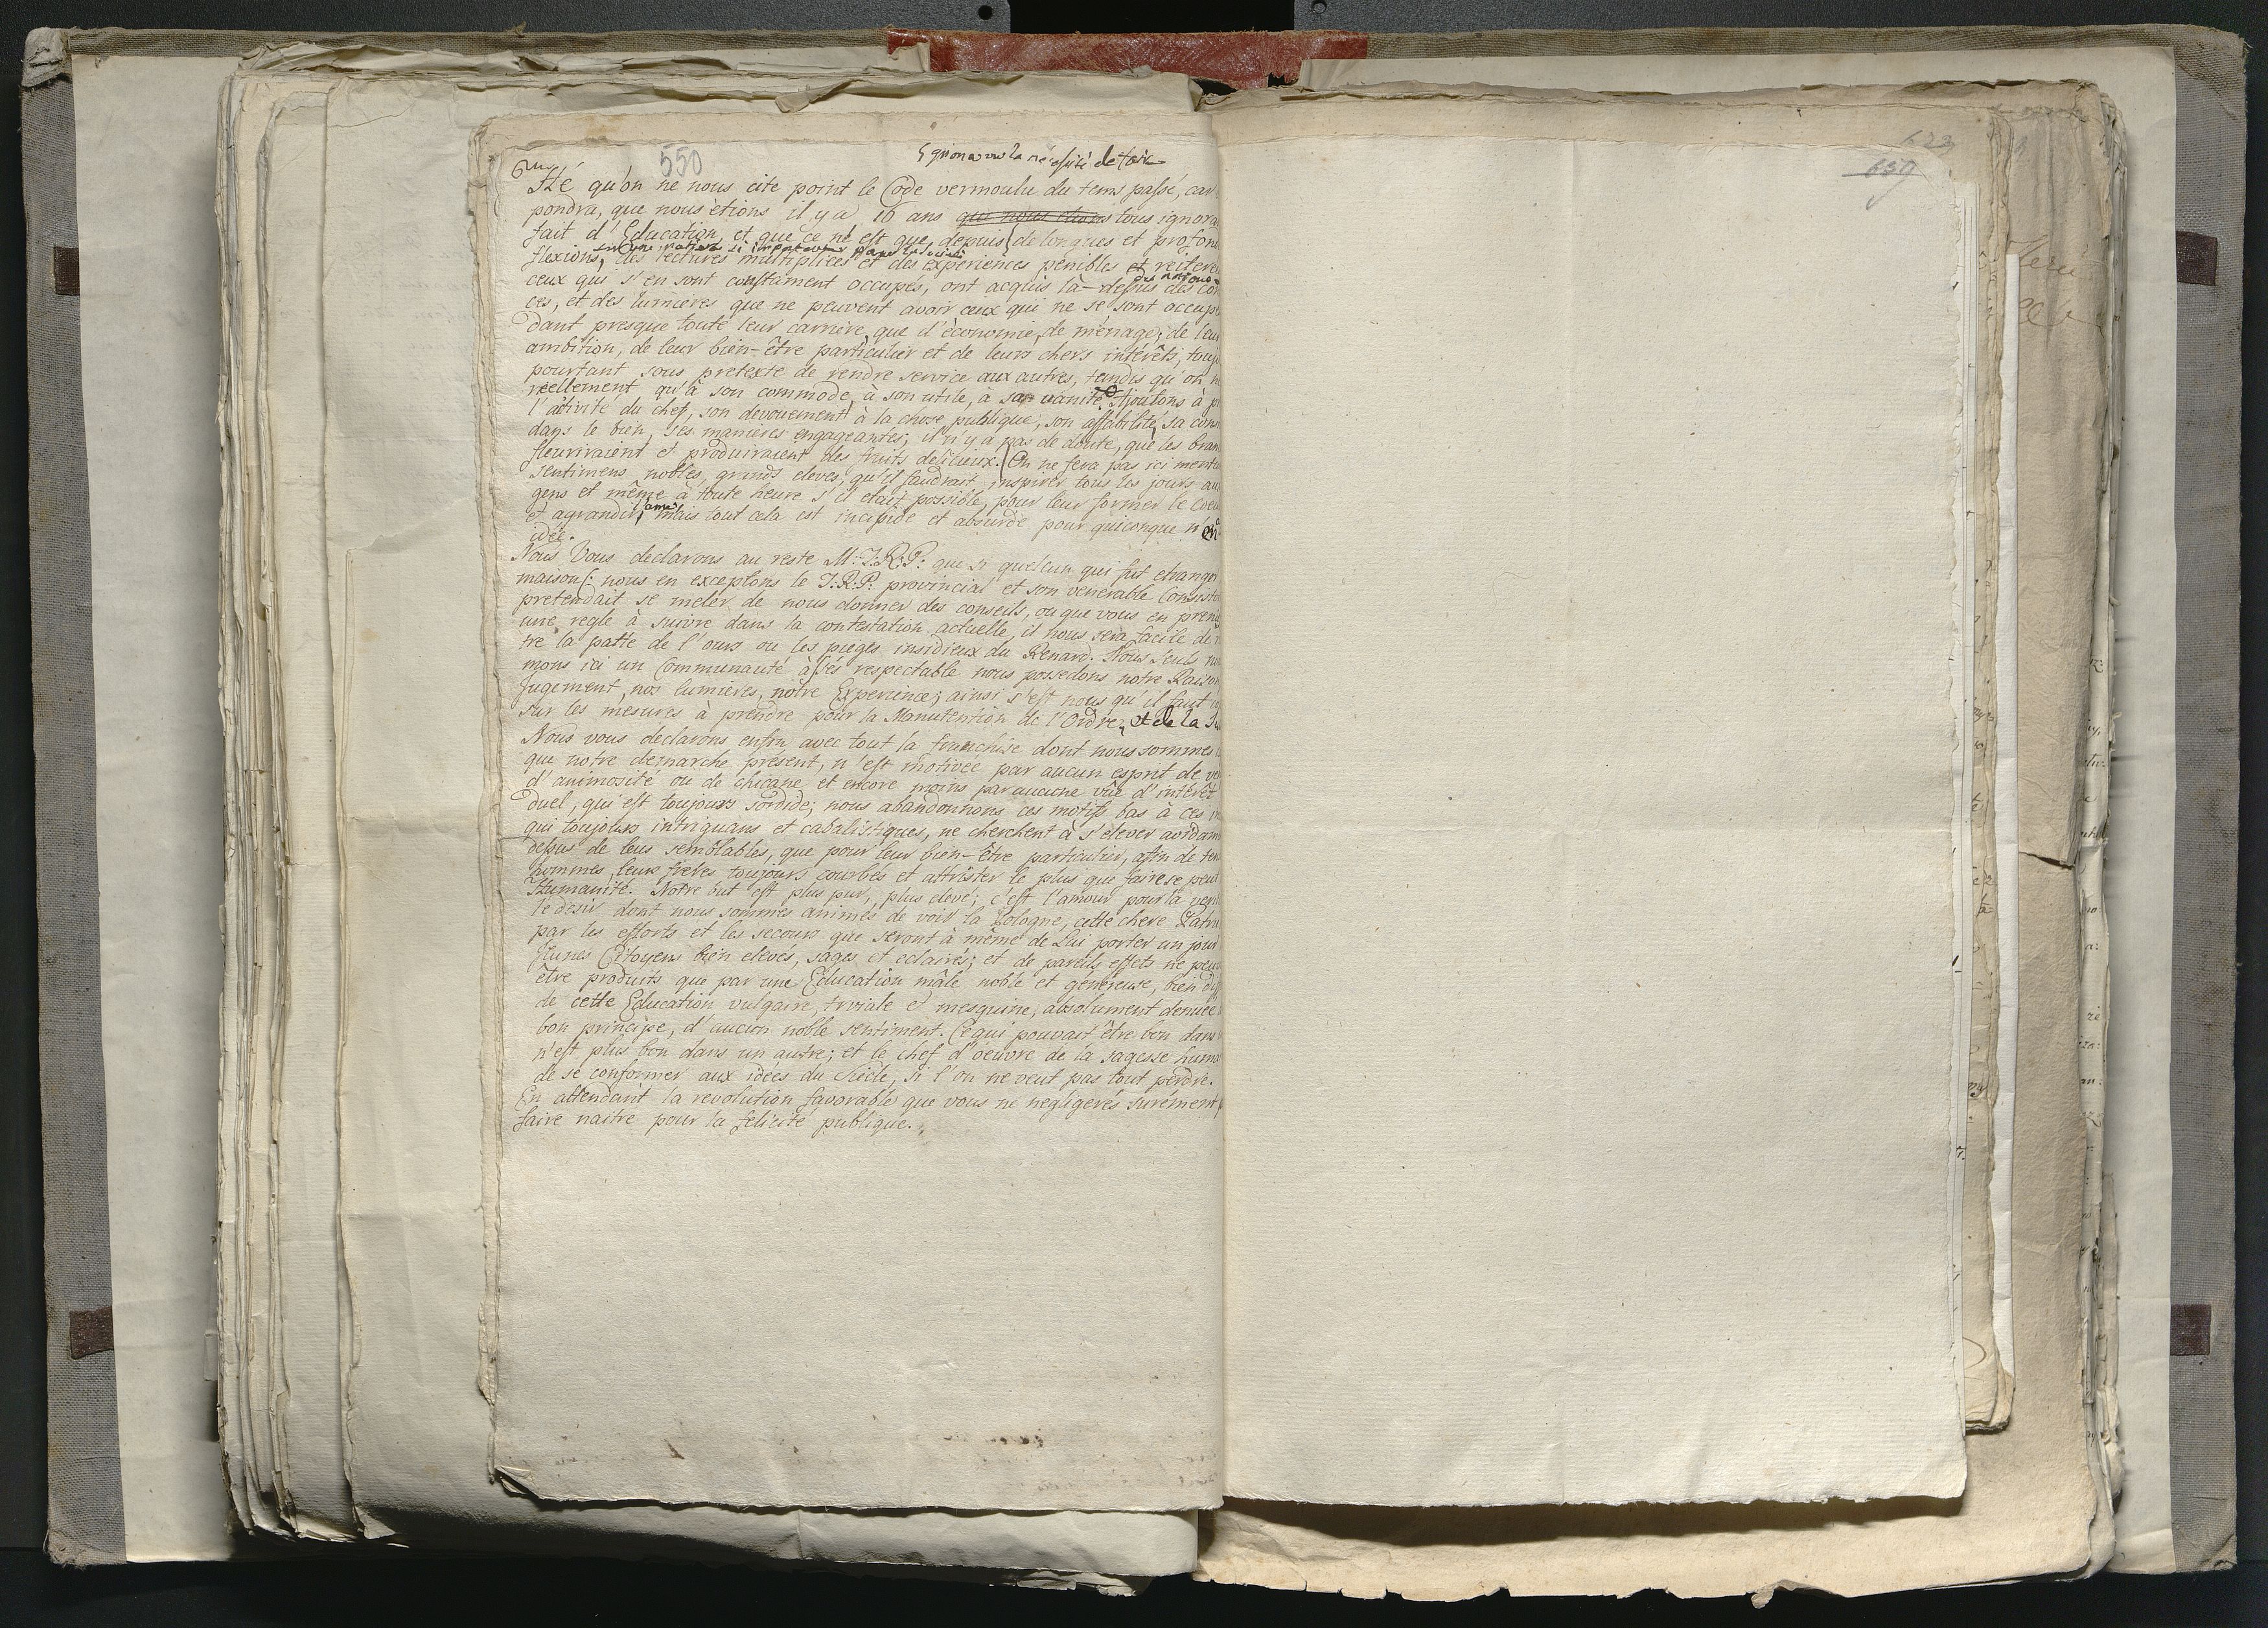 550
qu'on a vu la nécessité de faire
Hé qu'on ne nous cite point le Code vermoulu du tems passé, car
pondra, que nous étions il y a 16 ans que nous étions tous ignora
fait d'Education, et que ce n'est que, depuis de longues et profon
sur une matiere si importante pour la société
flexions, des lectures multiplices et des experiences penibles et reitere
ceux qui s'en sont constament occupés, ont acquis là-dessus des con
ces, et des lumieres que ne peuvent avoir ceux qui ne se sont occupe
dant presque toute leur carriere, que d'économie, de ménage, de leur
ambition, de leur bien-être particulier et de leurs chers intérêts, touj
pourtant sous pretexte de rendre service aux autres, tandis qu'on n
réellement qu'à son commode, à son utile, à sa vanité. Ajoutons à p
l'activité du chef, son devouement à la chose publique, son affabilité, sa cons
dans le bien, ses manieres engageantes; il n'y a pas de doute, que les bran
fleuriraient et produiraient des fruits delicieux. On ne fera pas ici menti
sentimens nobles, grands elevés, qu'il faudrait inspirer tous les jours au
gens et même à toute heure s'il était possible, pour leur former le coeu
et agrandir l'ame, mais tout cela est insipide et absurde pour quiconque n'en
idée.
Nous Vous declarons au reste M: T: R: P: que si quelcun qui fut etranger
maison /: nous en exceptons le T: R: P: provincial et son venerable Consisto
pretendait se meler de nous donner des conseils, ou que vous en preniè
une regle à suivre dans la contestation actuelle, il nous sera facile de
tre la patte de l'ours ou les pieges insidieux du Renard. Nous seuls
mons ici un Communauté assés respectable nous possedons notre Raison
Jugement, nos lumieres, notre Experience; ainsi s'est nous qu'il faut
sur les mesures à prendre pour la Manutention de l'Ordre, et de la
Nous vous declarons enfin avec tout la franchise dont nous sommes
que notre demarche present, n'est motivée par aucun esprit de ve
d'animosité ou de chicane, et encore moins par aucune vûe d'intérêt
duel, qui est toujours sordide; nous abandonnons ces motifs bas à ces
qui toujours intriguans et cabalistiques, ne cherchent à s'elever avidam
dessus de leus semblables, que pour leur bien-être particulier, afin de ten
hommes, leurs freres toujours courbés et attrister le plus que faire se peut
Humanité. Notre but est plus pur, plus elevé; c'est l'amour pour la verit
le desir dont nous sommes animés de voir la Pologne, cette chere Patri
par les efforts et les secours que seront à même de Lui porter un jour
Jeunes Citoyens bien elevés, sages et eclairés; et de pareils effets ne peuv
être produits que par une Education mâle, noble et génereuse, bien di
de cette Education vulgaire, triviale et mesquine, absolument denuée
bon principe, d'aucun noble sentiment. Ce qui pouvait être bon dans
n'est plus bon dans un autre; et le chef d'oeuvre de la sagesse huma
de se conformer aux idées du Siècle, si l'on ne veut pas tout perdre.
En attendant la revolution favorable que vous ne negligerés surement
faire naitre pour la felicité publique.
623
659